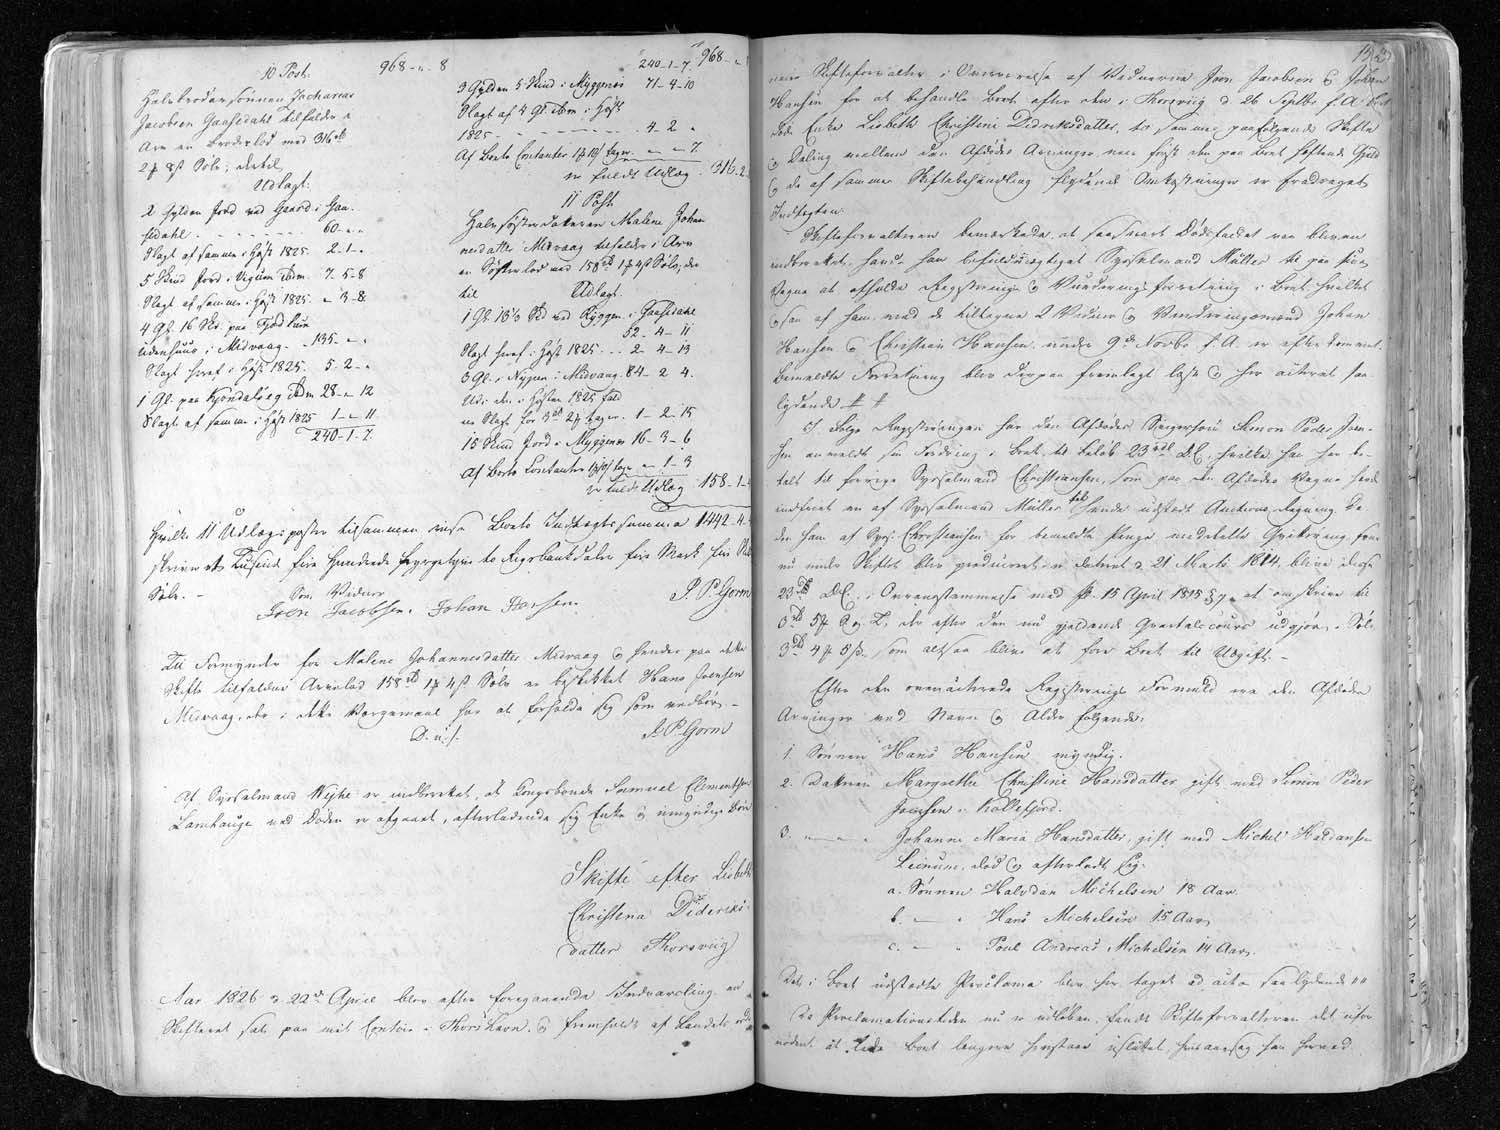 10 Post. 968 - " 8
Halvbrodersönnen Zacharias
Jacobsen Gaasedahl tilfalder i
Arv en Broderlod med 316 rd
2 ƶ 8 s Sölv, dertil
Udlagt:
2 Gylden Jord ved Gaard i Gaa-
sedahl. - - - - - - 60. " "
Slagt af samme i Höst 1825. 2 - 1 - "
5 Skind Jord i Vigum Ibdm. 7. 5 - 8
Slagt af samme i Höst 1825. " 3 - 8
4 Gl. 16 Sk. paa
udenhuus i Midvaag. - 135. - "
Slagt heraf i Höst 1825. 5 2 - "
1 Gl. paa Ibdm 28 - " 12
Slagt af samme i Höst 1825 1 - " 11
240 - 1 - 7.
240 - 1 - 7 968 -
3 Gylden 5 Skind i Myggenes 71 - 4 - 10
Slagt af 4 Gl. Ibm i Höst
1825. - - - - - - - - 4. 2 "
Af Boets Contanter - " - 7.
er fuldt Udlæg. 316. 2.
11 Post
Halvsösterdatteren Malene Johan-
nesdatter Midvaag tilfalder i Arv
en Sösterlod med 158 rd 1 ƶ 4 s Sölv, der-
til Udlagt.
1 Gl. 18½ Sk ved Ryggen i Gaasedahl
52 - 4 - 11
Slagt heraf i Höst 1825. . . 2 - 4 - 13
3 Gl. i Nygen i Midvaag. 84 - 2 4.
Udi den i Hösten 1825 fald-
ne Slagt for 3 rd 2 ƶ tages. 1 - 2 - 15
15 Skind Jord i Myggenes 16 - 3 - 6
Af Boets Contanter tages " 1 - 3
er fuldt Udlæg 158 - 1 -
Hvilke 11 Udlægsposter tilsammen viser Boets Indtægtssumma 1442 - 4 -
skriver et Tusend fire Hundrede fyrgetyve to Rigsbankdaler fire Mark
Sölv. -
Som Vidner
Joen Jacobsen. Johan Hansen. P. P. Gorm
Til Formynder for Malene Johannesdatter Midvaag og hendes paa dette
Skifte tilfaldne Arvelod 158 rd 1 ƶ 4 s Sölv er beskikket Hans Joensen
Midvaag, der i dette Værgemaal har at forholde sig som vedbör. -
D. u. s. P. P. Gorm
At Sysselmand Weyhe er indberettet, at Kongsbonde Samuel Clementsen
Lamhauge ved Döden er afgaaet, efterladende sig Enke og umyndige Börn
Skifte efter Lisbeth
Christina Dideriks-
datter Thorsviig
Aar 1826 d. 22de April blev efter foregaaende Indvarsling en
Skifteret sat paa mit Contoir i Thorshavn, og fremholdt af Landets
192
Skifteforvalter i Overværelse af Vidnerne Joen Jacobsen og Johan
Hansen for at behandle Boet efter den i Thorsviig d. 26 Septbr. f. A.
döde Enke Lisbeth Christine Didriksdatter, til sammes paafölgende Skifte
og Deling mellem den Afdödes Arvinger, naar först den paa Boet heftende Gjeld
og de af sammes Skiftebehandling flydende Omkostninger er fradraget
Indtægten.
Skifteforvalteren bemærkede, at saasnart Dödsfaldet var bleven
indberettet, havde han befuldmægtiget Sysselmand Müller til paa sine
Vegne at afholde Registrerings og Vurderings forretning i Boet hvilket
og saa af ham med de tiltagne 2 Vidner og Vurderingsmænd Johan
Hansen og Christian Hansen under 9 d. Novbr. f. A. er efterkommet.
Bemeldte Forretning blev derpaa fremlagt læst og her acteret saa-
lydende # #
I Fölge Registreringen har den Afdödes Svigersön Simon Peder Joen-
sen anmeldt sin Fordring i Boet, til Belöb 23 rd D. C., hvilke han har be-
talt til forrige Sysselmand Christiansen, som paa den Afdödes Vegne havde
indfriet en af Sysselmand Müller til hende udstedt Auctions Regning. Da
den ham af Syss: Christiansen for bemeldte Penge meddeelte Qvittering, som
nu under Skiftet blev produceret er dateret d. 21 Marts 1814, blive disse
23 rd D. C. i Overeensstemmelse med Fr. 15 April 1815 § 7 at omskrive til
3 rd 5 ƶ R. g. T., der efter den nu gjældende Qvartalscours udgjör i Sölv
3 rd 4 ƶ 5 s., som altsaa blive at före Boet til Udgift. -
Efter den overacterede Registrerings Forretning var den Afdödes
Arvinger ved Navn og Alder fölgende:
1. Sönnen Hans Hansen myndig.
2. Datteren Margrethe Christine Hansdatter gift med Simon Peder
Joensen i Kollefjord.
3. - " - " Johanne Maria Hansdatter, gift med Michel Haldansen
Leinum, död og efterladt sig:
a. Sönnen Halvdan Michelsen 18 Aar.
b. - " Hans Michelsen 15 Aar,
c. - " Poul Andreas Michelsen 14 Aar.
Det i Boet udstedte Proclama blev her taget ad acta saalydende " "
Da Proclamationstiden nu er udlöben, fandt Skifteforvalteren det ufor-
nödent at lade Boet længere henstaae usluttet, hvisaarsag han herved